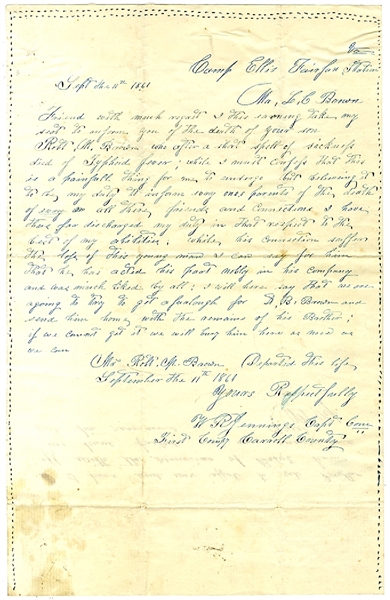 Va
Camp Ellis Fairfax Station
Sept the 11th 1861
Mr. L. C. Brown
Friend with much regret I this evening take my
seat to inform you of the death of your son
Robt. M. Brown was after a short spell of sickness
died of Typhoid fever; while I must confess that this
is a painfull thing for me to undergo but believing it
to be my duty to inform evry one parents of the death
of evry on all there friends and connections I have
there for discharged my duty in that respect to the
best of my abilities; while his connection suffer
the loss of this young man I can say for him
that he has acted his part nobly in his company
and was much liked by all; I will here say that we are
agoing to try to get a fualough for D. B. Brown and
send him home with the remains of his Brother;
if we cannot get it we will bury him here as nice as
we can
Mr Robt. M. Brown Departed this life
September the 11th 1861
Yours Respectfully
W. R. Jennings, Capt Com
First Compy Carroll County